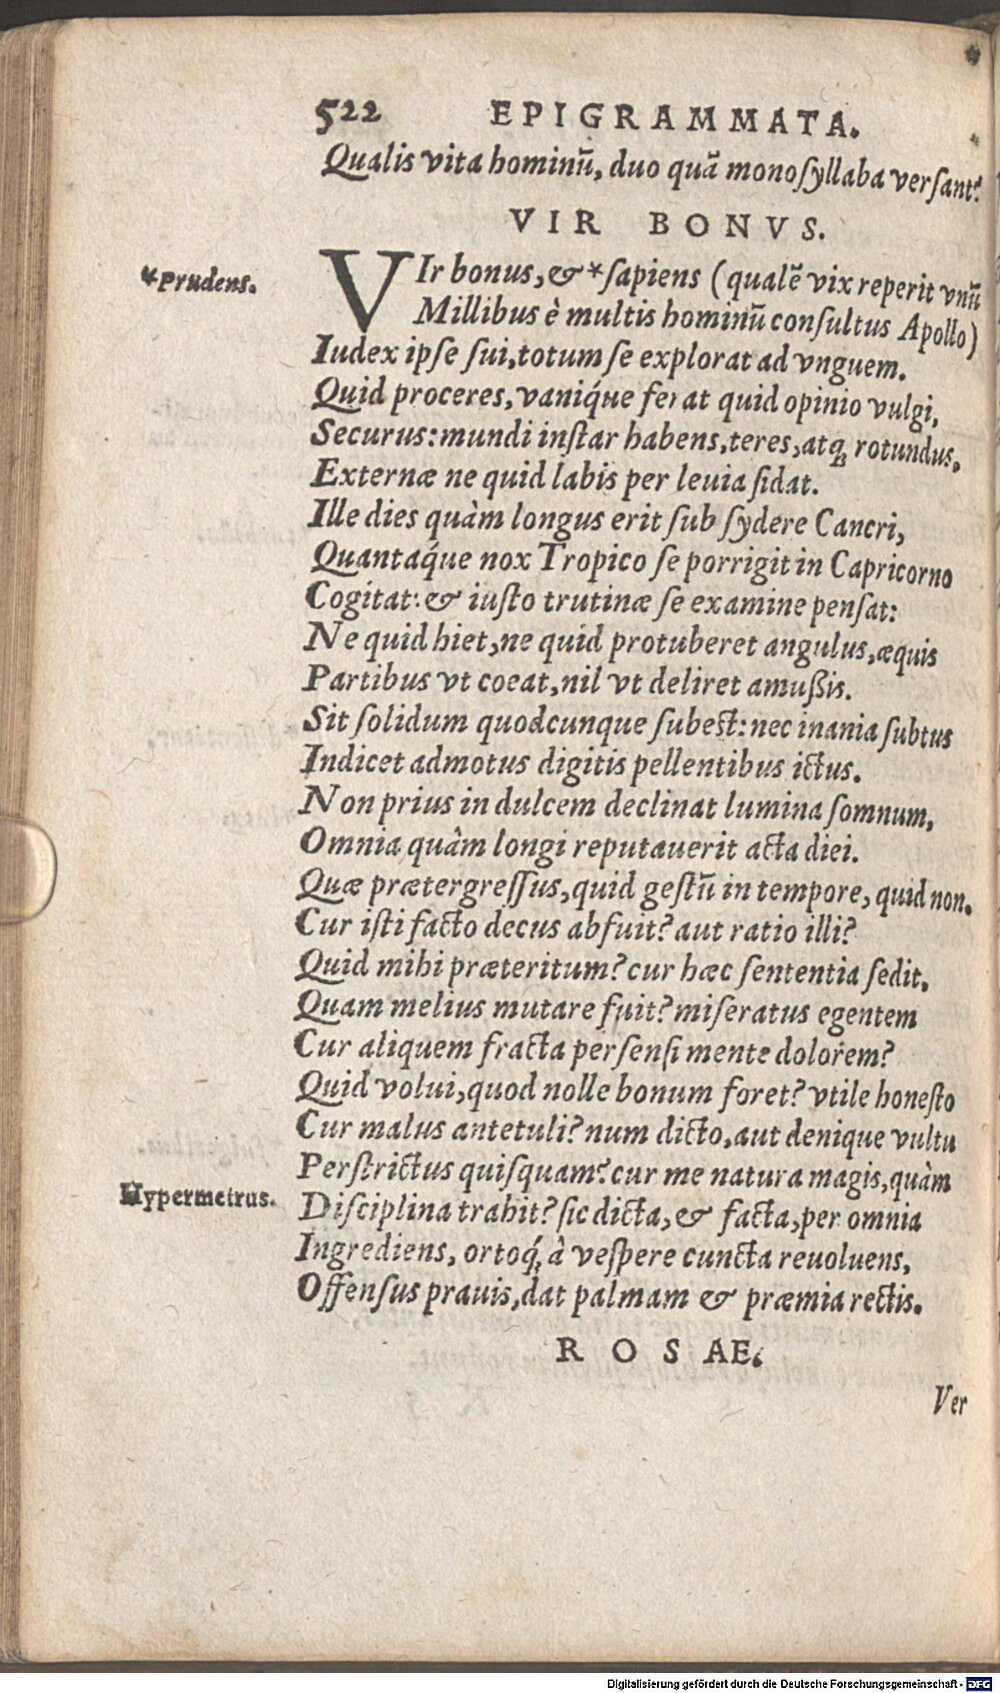 522 EPIGRAMMATA.
Qualis vita hominū, duo quā monoſyllaba verſant?
VIR BONVS.
*Prudens.
VIr bonus, & *ſapiens (qualē vix reperit vnū
Millibus è multis hominū conſultus Apollo)
Iudex ipſe ſui, totum ſe explorat ad vnguem.
Quid proceres, vaniq́ue ferat quid opinio vulgi,
Securus: mundi inſtar habens, teres, atq; rotundus,
Externæ ne quid labis per leuia ſidat.
Ille dies quàm longus erit ſub ſydere Cancri,
Quantaq́ue nox Tropico ſe porrigit in Capricorno
Cogitat: & iuſto trutinæ ſe examine penſat:
Ne quid hiet, ne quid protuberet angulus, æquis
Partibus vt coeat, nil vt deliret amußis.
Sit ſolidum quodcunque ſubest: nec inania ſubtus
Indicet admotus digitis pellentibus ictus.
Non prius in dulcem declinat lumina ſomnum,
Omnia quàm longi reputauerit acta diei.
Quæ prætergreſſus, quid geſtū in tempore, quid non.
Cur iſti facto decus abfuit? aut ratio illi?
Quid mihi præteritum? cur hæc ſententia ſedit,
Quam melius mutare fuit? miſeratus egentem
Cur aliquem fracta perſenſi mente dolorem?
Quid volui, quod nolle bonum foret? vtile honeſto
Cur malus antetuli? num dicto, aut denique vultu
Perſtrictus quiſquam? cur me natura magis, quàm
Hypermetrus.
Diſciplina trahit? ſic dicta, & facta, per omnia
Ingrediens, ortoq́; à veſpere cuncta reuoluens,
Offenſus prauis, dat palmam & præmia rectis.
ROSAE.
Ver
Digitalisierung gefördert durch die Deutsche Forschungsgemeinschaft - DFG